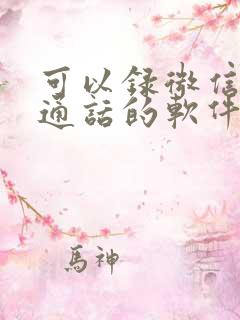 可以録微信
通話的軟件
馬神